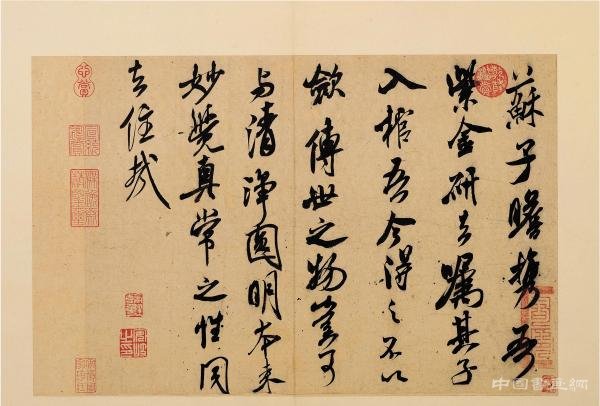 蘇子瞻携吾
紫金研去嘱其子
入棺吾今得之不以
歛傳世之物豈可
与清淨圓明本来
妙覺真常之性同
去住哉
中国書画網